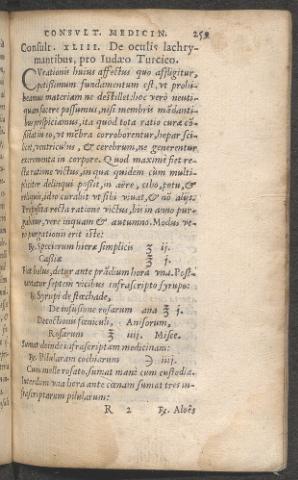 CONSVLT. MEDICIN. 259
Consult. XLIII. De oculis lachry-
mantibus, pro Iudæo Turcico.
CVrationis huius affectus quo affligitur,
potissimum fundamentum est, vt prohi-
beamus materiam ne destillet: hoc verò neuti-
quam facere possumus, nisi membris mãdanti-
bus prospiciamus, ita quod tota ratio curæ cõ-
sistat in eo, vt mẽbra corroborentur, hepar sci-
licet, ventriculus, & cerebrum, ne generentur
excrementa in corpore. Quod maximè fiet re-
cta ratione victus, in qua quidem cùm multi-
pliciter delinqui possit, in aëre, cibo, potu, &
reliquis, ideo curabit vt sibi viuat, & nõ alijs.
Proposita recta ratione victus, bis in anno pur-
gabitur, vere inquam & autumno. Modus ve-
rò purgationis erit iste:
℞. Specierum hieræ simplicis ʒ ij.
Casiæ ℥ j.
Fiat bolus, detur ante prãdium hora vna. Post
vtatur septem vicibus infrascripto syrupo:
℞. Syrupi de stœchade,
De infusione rosarum ana ℥ j.
Decoctionis fœniculi, Anisorum,
Rosarum ℥ iiij. Misce.
Sumat deinde infrascriptam medicinam:
℞. Pilularum cochiarum ℈ iiij.
Cum melle rosato, sumat manè cum custodia.
Interdum vna hora ante cœnam sumat tres in-
frascriptarum pilularum:
R 2 ℞. Aloës